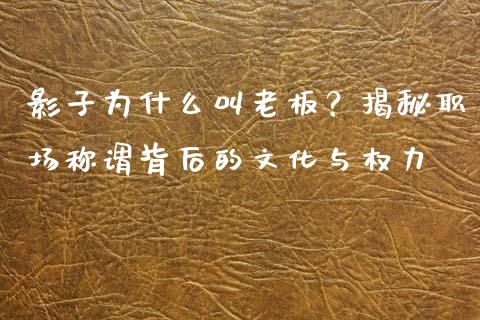 影子为什么叫老板？揭秘职
场称谓背后的文化与权力